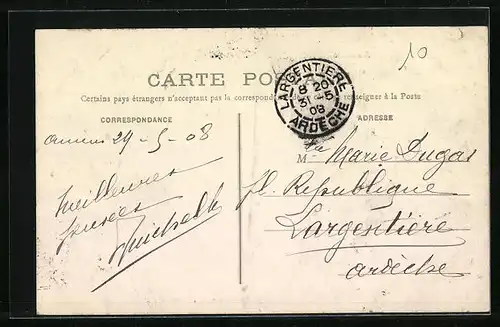 10
CARTE POSTALE
Certains pays étrangers n'acceptant pas la correspondance se renseigner à la Poste
LARGENTIERE
8 20
3 -5
08
ARDECHE
CORRESPONDANCE
ADRESSE
29 - 5 - 08
Meilleures
pensées
M Marie Dugas
pl. République
Largentière
Ardèche